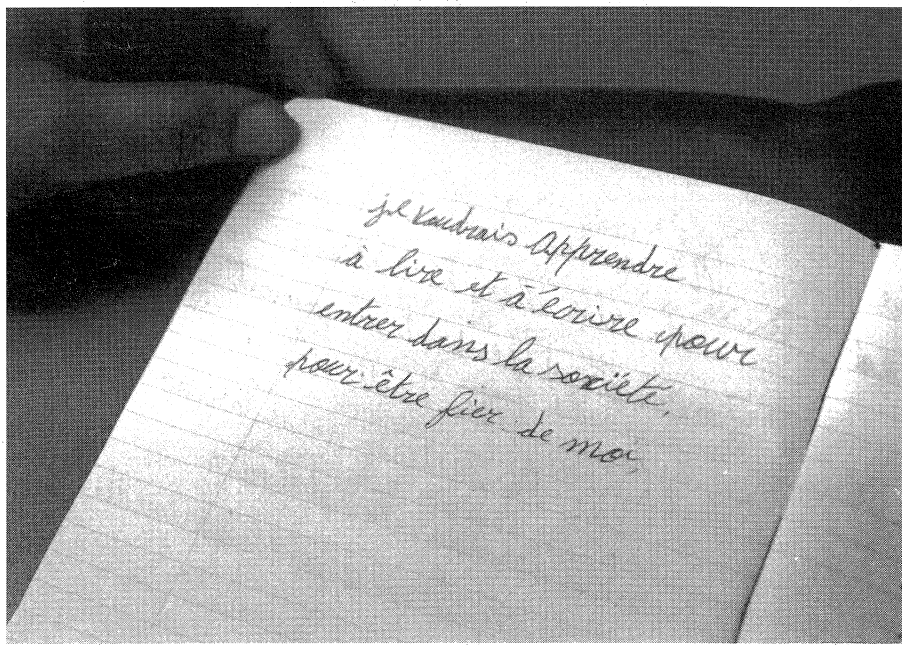 je voudrais apprendre
à lire et à écrire pour
entrer dans la société,
pour être fier de moi,